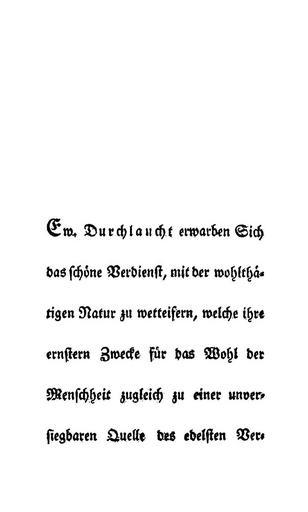 Ew. Durchlaucht erwarben Sich
das schöne Verdienst, mit der wohlthä-
tigen Natur zu wetteifern, welche ihre
ernstern Zwecke für das Wohl der
Menschheit zugleich zu einer unver-
siegbaren Quelle des edelsten Ver-